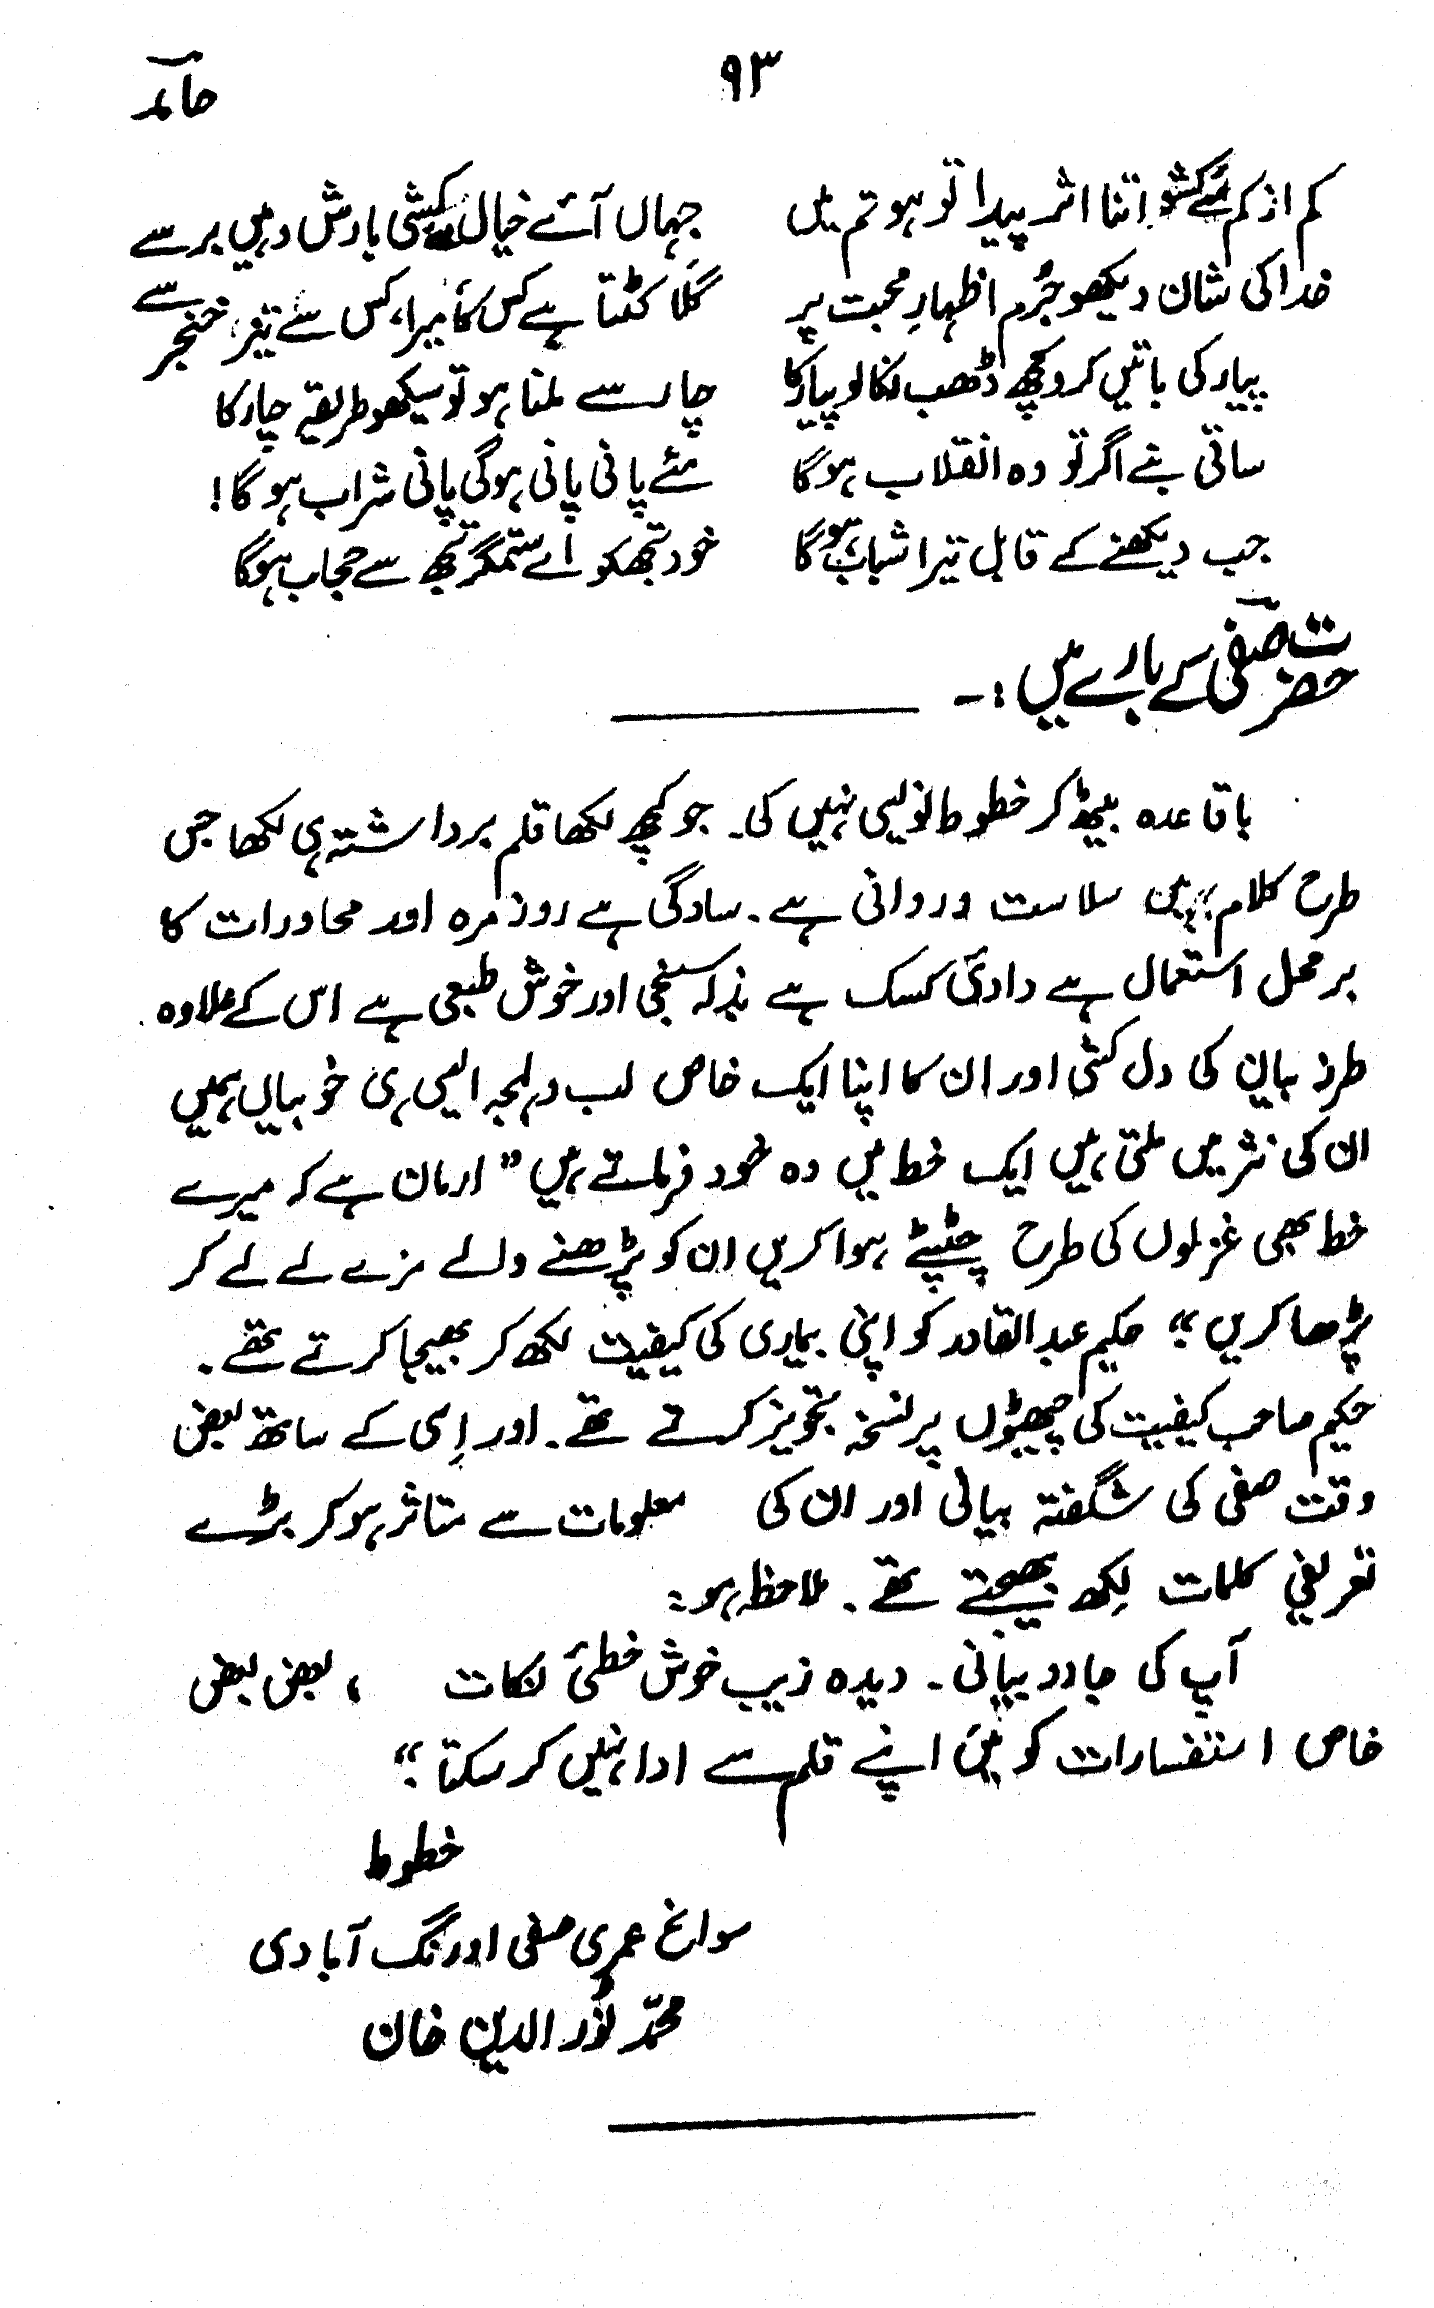 ۹۳
حامد
کم از کم مے کشو اتنا اثر پیدا تو ہو تم میں جہاں آئے خیالِ مے کشی بارش وہیں برسے
خدا کی شان دیکھو جُرم اظہارِ محبت پر گلا کٹتا ہے کس کا میرا، کس سے تیرے خنجر سے
پیار کی باتیں کرو کچھ ڈھب نکالو پیار کا چار سے ملنا ہو تو سیکھو طریقہ چار کا
ساقی بنے اگر تو وہ انقلاب ہوگا مئے پانی پانی ہوگی پانی شراب ہوگا!
جب دیکھنے کے قابل تیرا شباب ہوگا خود تجھکو اے ستمگر تجھ سے حجاب ہوگا
حضرت صفی کے بارے میں :-
باقاعدہ بیٹھ کر خطوط نویسی نہیں کی۔ جو کچھ لکھا قلم برداشتہ ہی لکھا جس
طرح کلام میں سلاست و روانی ہے۔ سادگی ہے روز مرہ اور محاورات کا
بر محل استعمال ہے کسک ہے بذلہ سنجی اور خوش طبعی ہے اس کے علاوہ
طرز بیان کی دل کشی اور ان کا اپنا ایک خاص لب و لہجہ ایسی ہی خوبیاں ہمیں
ان کی نثر میں ملتی ہیں ایک خط میں وہ خود فرماتے ہیں ”ارمان ہے کہ میرے
خط بھی غزلوں کی طرح چٹپٹے ہوا کریں ان کو پڑھنے والے مزے لے لے کر
پڑھا کریں“۔ حکیم عبدالقادر کو اپنی بیماری کی کیفیت لکھ کر بھیجا کرتے تھے۔
حکیم صاحب کیفیت کی چھیڑوں پر نسخہ تجویز کرتے تھے۔ اور اِسی کے ساتھ بعض
وقت صفی کی شگفتہ بیانی اور ان کی معلومات سے متاثر ہو کر بڑے
تعریفی کلمات لکھ بھیجتے تھے۔ ملاحظہ ہو:
آپ کی جادو بیانی۔ دیدہ زیب خوش خطی نکات ، بعض بعض
خاص استفسارات کو میں اپنے قلم سے ادا نہیں کر سکتا“۔
خطوط
سوانح عمری صفی اورنگ آبادی
محمّد نُور الدین خان